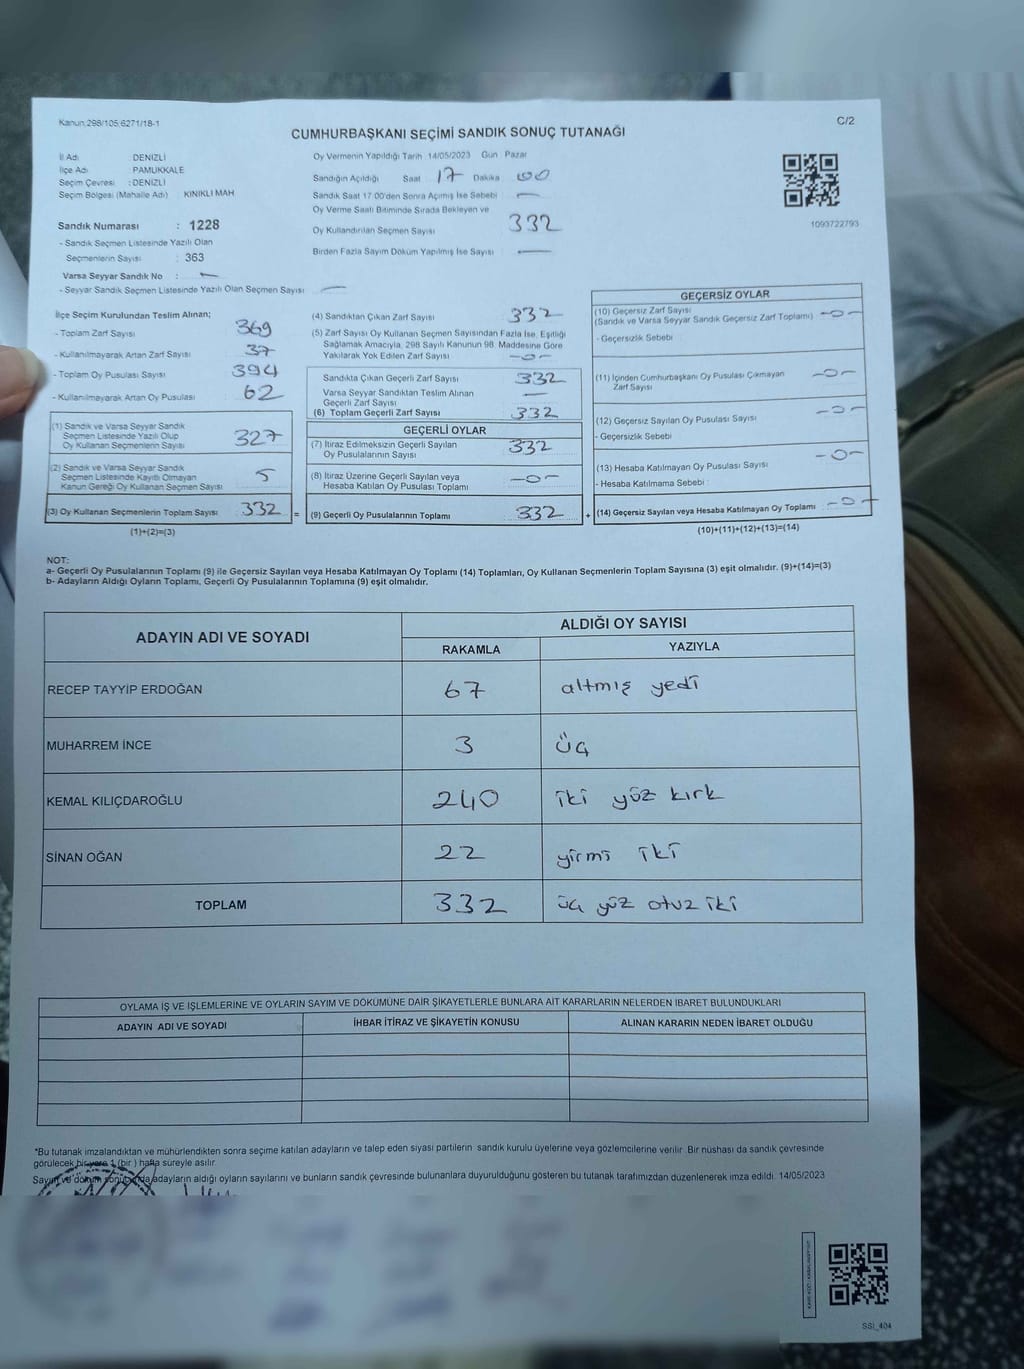 Kanun:298/105,6271/18-1
C/2
CUMHURBAŞKANI SEÇİMİ SANDIK SONUÇ TUTANAĞI
İl Adı DENİZLİ
İlçe Adı PAMUKKALE
Seçim Çevresi : DENİZLİ
Seçim Bölgesi (Mahalle Adı) KINIKLI MAH
Sandık Numarası : 1228
- Sandık Seçmen Listesinde Yazılı Olan
Seçmenlerin Sayısı : 363
Varsa Seyyar Sandık No : —
- Seyyar Sandık Seçmen Listesinde Yazılı Olan Seçmen Sayısı —
Oy Vermenin Yapıldığı Tarih 14/05/2023 Gün Pazar
Sandığın Açıldığı Saat 17 Dakika 00
Sandık Saat 17:00'den Sonra Açılmış İse Sebebi —
Oy Verme Saati Bitiminde Sırada Bekleyen ve
Oy Kullandırılan Seçmen Sayısı 332
Birden Fazla Sayım Döküm Yapılmış İse Sayısı —
1093722793
İlçe Seçim Kurulundan Teslim Alınan;
- Toplam Zarf Sayısı 369
- Kullanılmayarak Artan Zarf Sayısı 37
- Toplam Oy Pusulası Sayısı 394
- Kullanılmayarak Artan Oy Pusulası 62
(1) Sandık ve Varsa Seyyar Sandık
Seçmen Listesinde Yazılı Olup
Oy Kullanan Seçmenlerin Sayısı 327
(2) Sandık ve Varsa Seyyar Sandık
Seçmen Listesinde Kayıtlı Olmayan
Kanun Gereği Oy Kullanan Seçmen Sayısı 5
(3) Oy Kullanan Seçmenlerin Toplam Sayısı 332 =
(1)+(2)=(3)
(4) Sandıktan Çıkan Zarf Sayısı 332
(5) Zarf Sayısı Oy Kullanan Seçmen Sayısından Fazla İse, Eşitliği
Sağlamak Amacıyla, 298 Sayılı Kanunun 98. Maddesine Göre
Yakılarak Yok Edilen Zarf Sayısı —0—
Sandıkta Çıkan Geçerli Zarf Sayısı 332
Varsa Seyyar Sandıktan Teslim Alınan —
Geçerli Zarf Sayısı
(6) Toplam Geçerli Zarf Sayısı 332
GEÇERLİ OYLAR
(7) İtiraz Edilmeksizin Geçerli Sayılan
Oy Pusulalarının Sayısı 332
(8) İtiraz Üzerine Geçerli Sayılan veya
Hesaba Katılan Oy Pusulası Toplamı —0—
(9) Geçerli Oy Pusulalarının Toplamı 332 +
GEÇERSİZ OYLAR
(10) Geçersiz Zarf Sayısı
(Sandık ve Varsa Seyyar Sandık Geçersiz Zarf Toplamı) —0—
- Geçersizlik Sebebi
(11) İçinden Cumhurbaşkanı Oy Pusulası Çıkmayan
Zarf Sayısı —0—
(12) Geçersiz Sayılan Oy Pusulası Sayısı —0—
- Geçersizlik Sebebi
(13) Hesaba Katılmayan Oy Pusulası Sayısı —0—
- Hesaba Katılmama Sebebi :
(14) Geçersiz Sayılan veya Hesaba Katılmayan Oy Toplamı —0—
(10)+(11)+(12)+(13)=(14)
NOT:
a- Geçerli Oy Pusulalarının Toplamı (9) ile Geçersiz Sayılan veya Hesaba Katılmayan Oy Toplamı (14) Toplamları, Oy Kullanan Seçmenlerin Toplam Sayısına (3) eşit olmalıdır. (9)+(14)=(3)
b- Adayların Aldığı Oyların Toplamı, Geçerli Oy Pusulalarının Toplamına (9) eşit olmalıdır.
ADAYIN ADI VE SOYADI
ALDIĞI OY SAYISI
RAKAMLA YAZIYLA
RECEP TAYYİP ERDOĞAN 67 altmış yedi
MUHARREM İNCE 3 üç
KEMAL KILIÇDAROĞLU 240 iki yüz kırk
SİNAN OĞAN 22 yirmi iki
TOPLAM 332 üç yüz otuz iki
OYLAMA İŞ VE İŞLEMLERİNE VE OYLARIN SAYIM VE DÖKÜMÜNE DAİR ŞİKAYETLERLE BUNLARA AİT KARARLARIN NELERDEN İBARET BULUNDUKLARI
ADAYIN ADI VE SOYADI İHBAR İTİRAZ VE ŞİKAYETİN KONUSU ALINAN KARARIN NEDEN İBARET OLDUĞU
*Bu tutanak imzalandıktan ve mühürlendikten sonra seçime katılan adayların ve talep eden siyasi partilerin sandık kurulu üyelerine veya gözlemcilerine verilir. Bir nüshası da sandık çevresinde
görülecek bir yere 1 (bir) hafta süreyle asılır.
Sayım ve döküm sonunda adayların aldığı oyların sayılarını ve bunların sandık çevresinde bulunanlara duyurulduğunu gösteren bu tutanak tarafımızdan düzenlenerek imza edildi. 14/05/2023
SSI_404